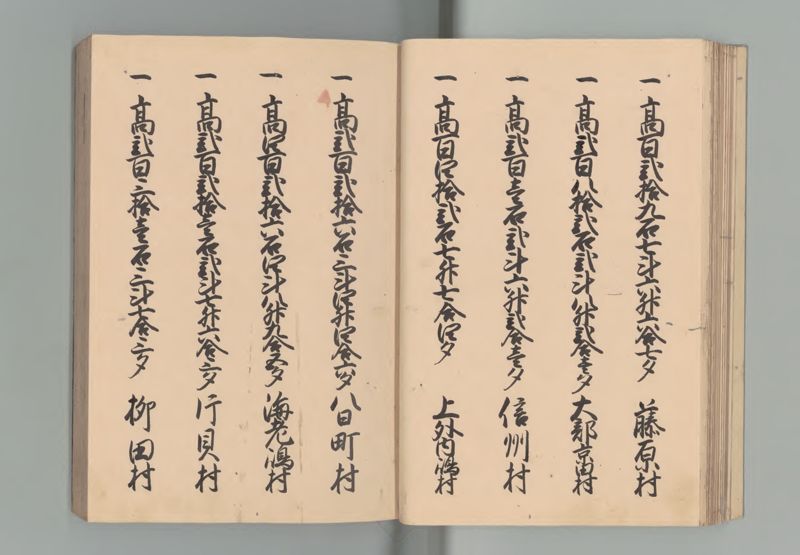 一 高百弐拾九石七斗六升六合七夕 藤原村
一 高弐百八拾弐石弐斗八升弐合壱夕 大部京田村
一 高弐百壱石弐斗六升弐合壱夕 信州村
一 高百四拾弐石七升七合四夕 上外内嶋村
一 高弐百弐拾六石三斗四升四合六夕 八日町村
一 高四百弐拾六石四斗八升九合五夕 海老嶋村
一 高弐百弐拾壱石弐斗七升六合六夕 行貝村
一 高弐百三拾壱石三斗七合三夕 柳田村